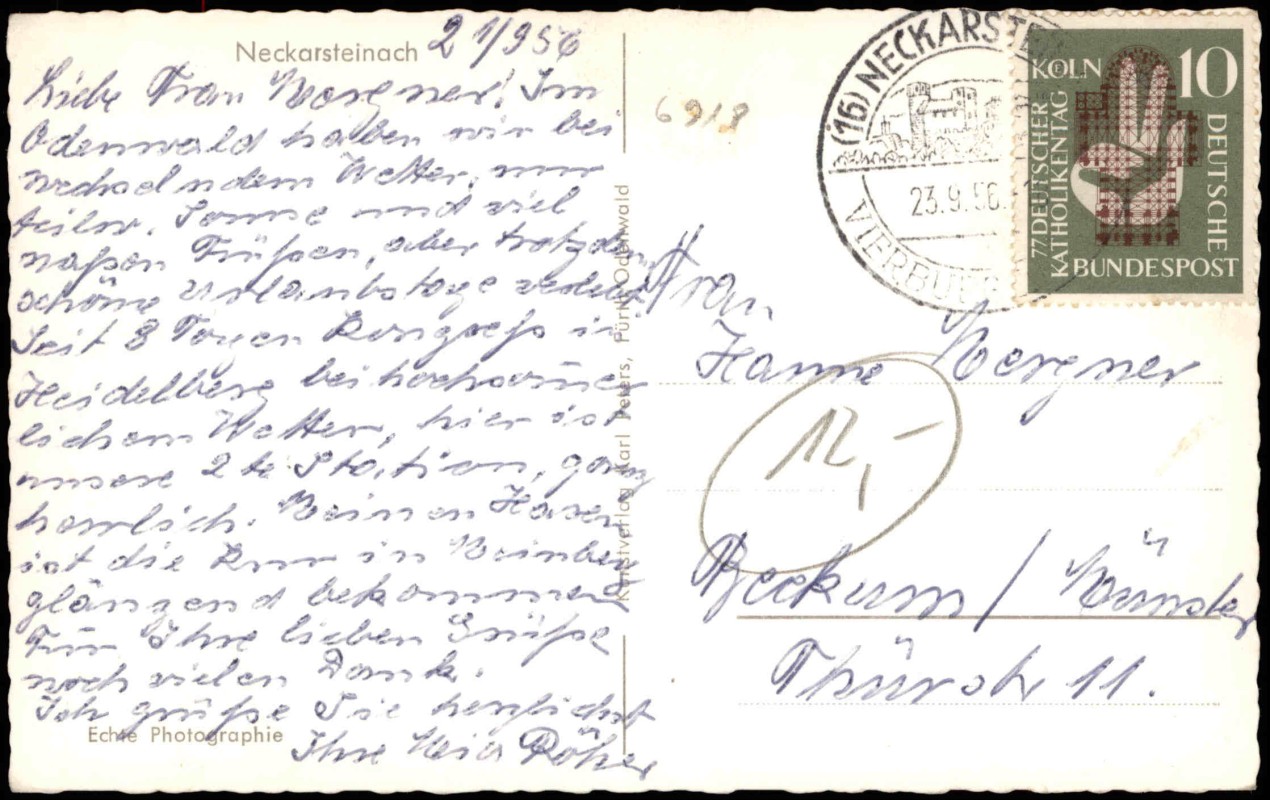 Neckarsteinach
21/956
Liebe Frau Mergner! Im
Odenwald haben wir bei
wechselndem Wetter, nur
teilw. Sonne und viel
naßen Füßen, aber trotzdem
schöne Urlaubstage verlebt
Seit 3 Tagen Kongreß in
Heidelberg bei hochsommer
lichem Wetter, hier ist
unsere 2te Station, ganz
herrlich. Meinen Hasen
ist die Kur in Meinberg
glänzend bekommen
Für Ihre lieben Grüße
noch vielen Dank.
Ich grüße Sie herzlichst
Ihre
Echte Photographie
Kunstverlag Karl Peters, Fürth/Odenwald
6918
(16) NECKARSTEI
23.9.56.
VIERBURG
KÖLN
10
77 DEUTSCHER
KATHOLIKENTAG
DEUTSCHE
BUNDESPOST
Frau
Hanne Mergner
12,-
Beckum / Münster
Thürstr 11.